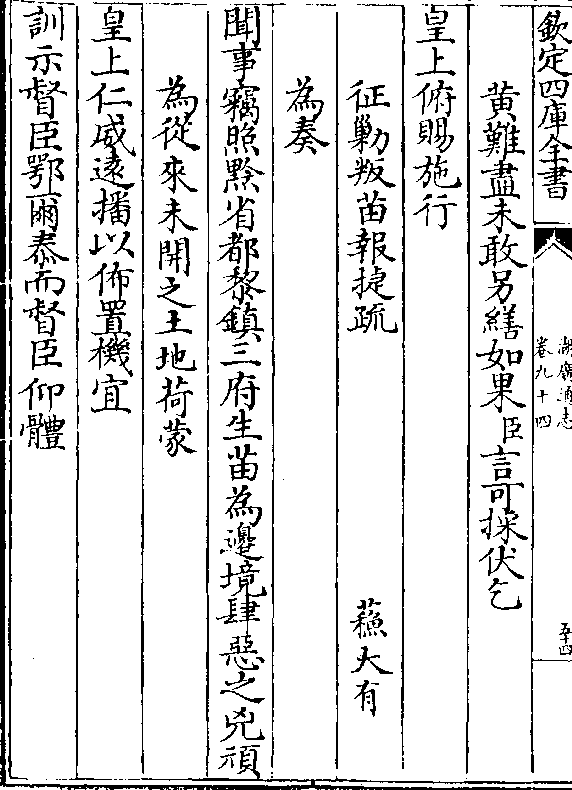 欽定四庫全書
湖廣通志
卷九十四
五十四
黄難盡未敢另繕如果臣言可採伏乞
皇上俯賜施行
征勦叛苗報捷疏 蘓大有
為奏
聞事竊照黔省都黎鎮三府生苗為邊境肆惡之兇頑
為從來未開之土地荷蒙
皇上仁威遠播以佈置機宜
訓示督臣鄂爾泰而督臣仰體